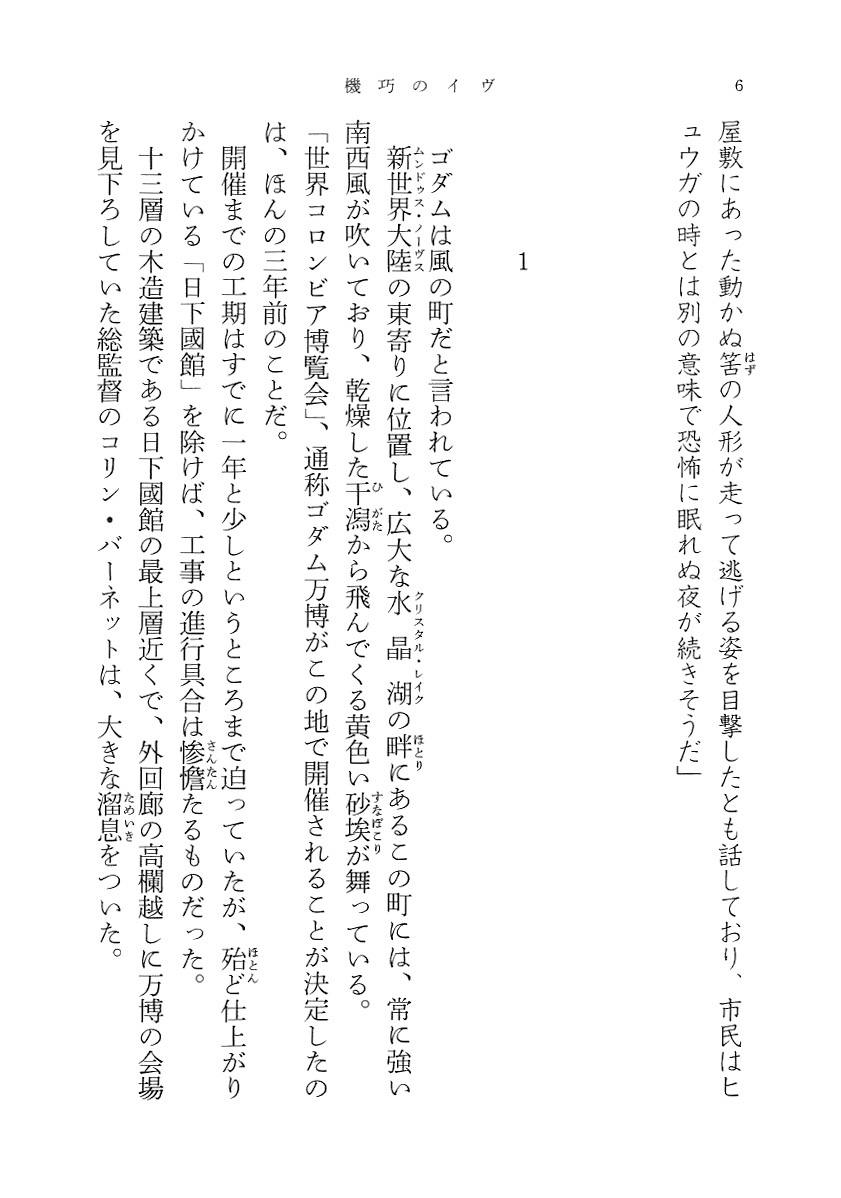 6
機巧のイヴ
屋敷にあった動かぬ筈の人形が走って逃げる姿を目撃したとも話しており、市民はヒ
ュウガの時とは別の意味で恐怖に眠れぬ夜が続きそうだ」
1
ゴダムは風の町だと言われている。
新世界大陸の東寄りに位置し、広大な水晶湖の畔にあるこの町には、常に強い
南西風が吹いており、乾燥した干潟から飛んでくる黄色い砂埃が舞っている。
「世界コロンビア博覧会」、通称ゴダム万博がこの地で開催されることが決定したの
は、ほんの三年前のことだ。
開催までの工期はすでに一年と少しというところまで迫っていたが、殆ど仕上がり
かけている「日下國館」を除けば、工事の進行具合は惨憺たるものだった。
十三層の木造建築である日下國館の最上層近くで、外回廊の高欄越しに万博の会場
を見下ろしていた総監督のコリン・バーネットは、大きな溜息をついた。
はず
ムンドゥス・ノーヴス
クリスタル・レイク
ほとり
ひがた
すなぼこり
ほとん
さんたん
ためいき